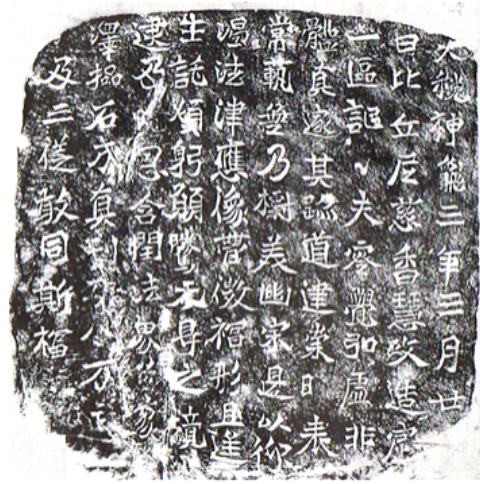 大魏神龜三年三月廿
日比丘尼慈香慧政造窟
一區記夫零覺弘虛非
體真邃其跡道建崇日表
常軌無乃標美幽宗是以仰
渴法津應像營微福形且遙
生託煩躬願騰无㝵之境
逮及恩含閏法界
澤石成真刊八方延
及三從敢同斯福